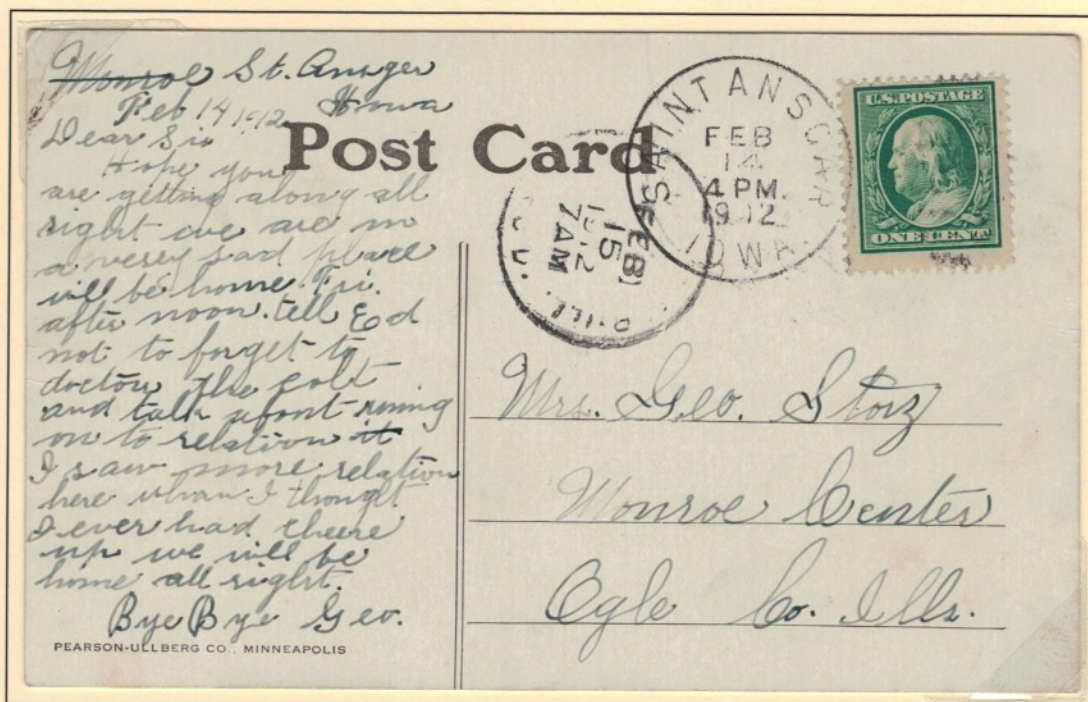 Monroe St. Ansger
Feb 14 1912 Iowa
Dear Sir
Hope you
are getting along all
right we are in
a very sad place
will be home Fri.
after noon. tell Ed
not to forget to
doctor the colt
and talk about runing
on to relation it
I saw more relation
here than I thought
I ever had cheere
up we will be
home all right.
Bye Bye Geo.
PEARSON-ULLBERG CO., MINNEAPOLIS
Post Card
SAINT ANSGAR
FEB
14
4 PM.
1912
IOWA.
FEB
15
1912
7 AM
ILL.
U.S. POSTAGE
ONE CENT
Mrs. Geo. Storz
Monroe Center
Ogle Co. Ills.